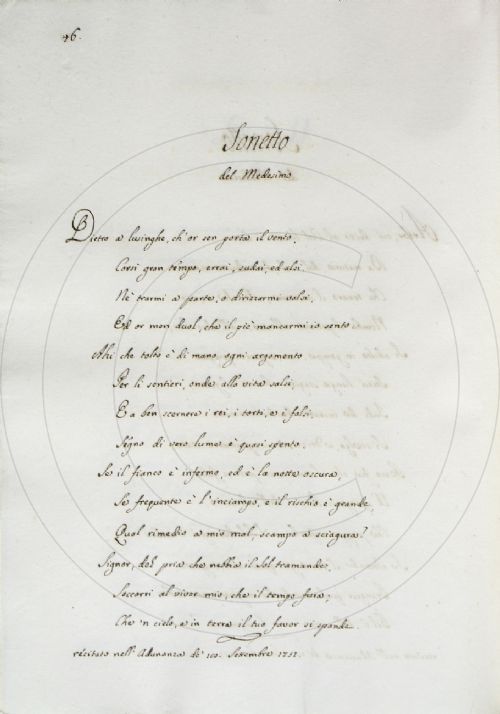 26.
Sonetto
del Medesimo
Dietro a lusinghe, ch'or sen porta il vento,
Corsi gran tempo, errai, sudai, ed alsi,
Nè trarmi a parte, o dirizzarmi valsi,
Ed or men duol, che il piè mancarmi io sento
Ahi che tolto è di mano ogni argomento
Per li sentieri, onde alla vita salsi,
E a ben scernere i rei, i torti, e i falsi,
Segno di vero lume è quasi spento.
Se il fianco è infermo, ed è la notte oscura,
Se frequente è l'inciampo, e il rischio è grande,
Qual rimedio a mio mal, scampo a sciagura?
Signor, del pria che nebbia il Sol tramande,
Soccorri al viver mio, che il tempo fura,
Che 'n cielo, e in terra il tuo favor si spande.
recitato nell'Adunanza de' Settembre